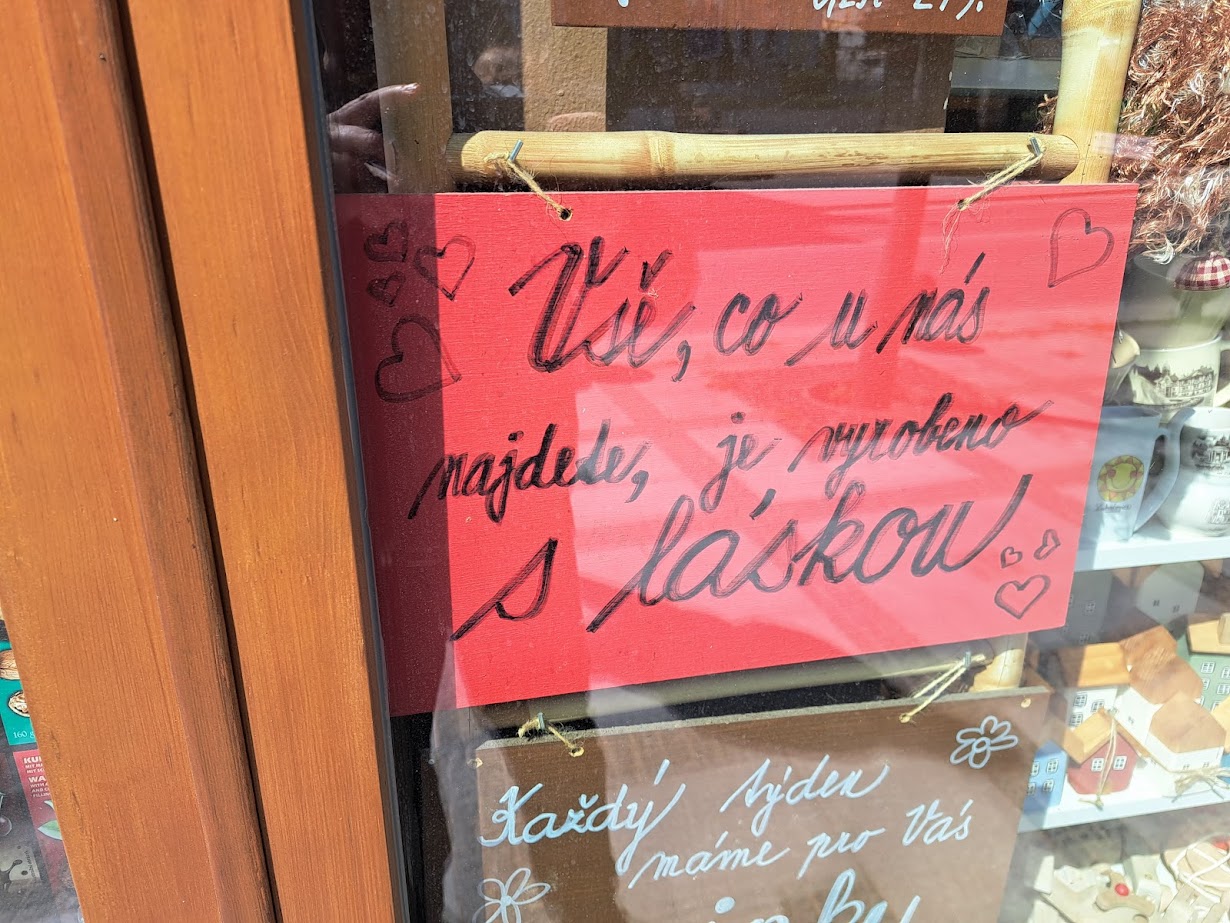 Vše, co u nás
najdete, je vyrobeno
s láskou
Každý týden
máme pro Vás
160 g